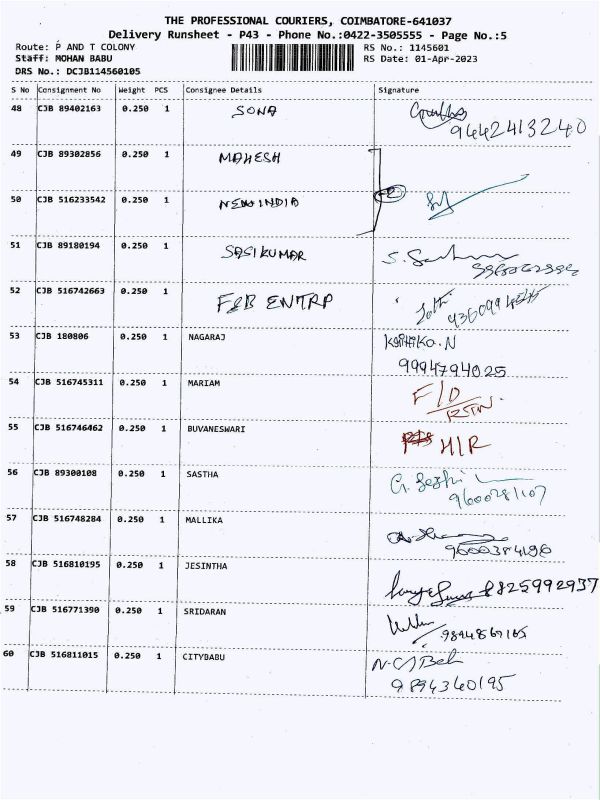 THE PROFESSIONAL COURIERS, COIMBATORE-641037
Delivery Runsheet - P43 - Phone No.:0422-3505555 - Page No.:5
Route: P AND T COLONY RS No.: 1145601
Staff: MOHAN BABU RS Date: 01-Apr-2023
DRS No.: DCJB114560105
S No Consignment No Weight PCS Consignee Details Signature
48 CJB 89402163 0.250 1 SONA
9442413240
49 CJB 89302856 0.250 1 MAHESH
50 CJB 516233542 0.250 1 NEW INDIA
51 CJB 89180194 0.250 1 SASIKUMAR
52 CJB 516742663 0.250 1 F&B ENTRP
53 CJB 180806 0.250 1 NAGARAJ
9994794025
54 CJB 516745311 0.250 1 MARIAM F/D
RTN.
55 CJB 516746462 0.250 1 BUVANESWARI H/R
56 CJB 89300108 0.250 1 SASTHA
9600281107
57 CJB 516748284 0.250 1 MALLIKA
9600384190
58 CJB 516810195 0.250 1 JESINTHA
8825992937
59 CJB 516771390 0.250 1 SRIDARAN
9894869165
60 CJB 516811015 0.250 1 CITYBABU
9894340195